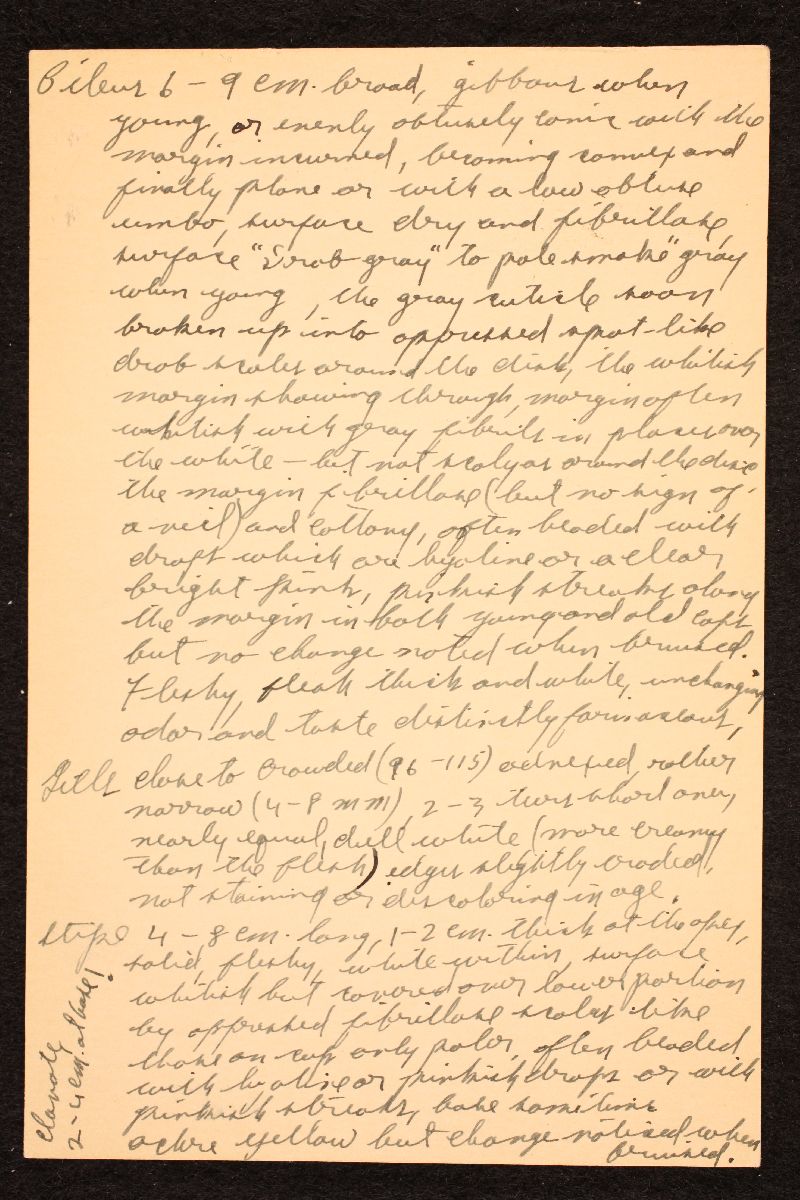 Pileus 6 - 9 cm. broad, gibbous when
young, or evenly obtusely conic with the
margin incurved, becoming convex and
finally plane or with a low obtuse
umbo, surface dry and fibrillose,
surface "Drab gray" to pale smoke" gray
when young, the gray cuticle soon
broken up into appressed spot-like
drab scales around the disk, the whitish
margin showing through, margin often
whitish with gray fibrils in places over
the white - but not scaly as around the disc
the margin fibrillose (but no sign of
a veil) and cottony, often beaded with
drops which are hyaline or a clear
bright pink, pinkish streaks along
the margin in both young and old caps
but no change noted when bruised.
Fleshy, flesh thick and white, unchanging
odor and taste distinctly farinaceous,
Gills close to crowded (96 - 115) adnexed, rather
narrow (4 - 8 mm), 2 - 3 tiers short ones,
nearly equal, dull white (more creamy
than the flesh) edges slightly eroded,
not staining or discoloring in age.
Stipe 4 - 8 cm. long, 1-2 cm. thick at the apex,
solid, fleshy, white within, surface
whitish but covered over lower portion
by appressed fibrillose scales like
those on cap only paler, often beaded
with hyaline or pinkish drops or with
pinkish streaks, base sometimes
ochre yellow but change noticed when
bruised.
clavate
2 - 4 cm. at base!